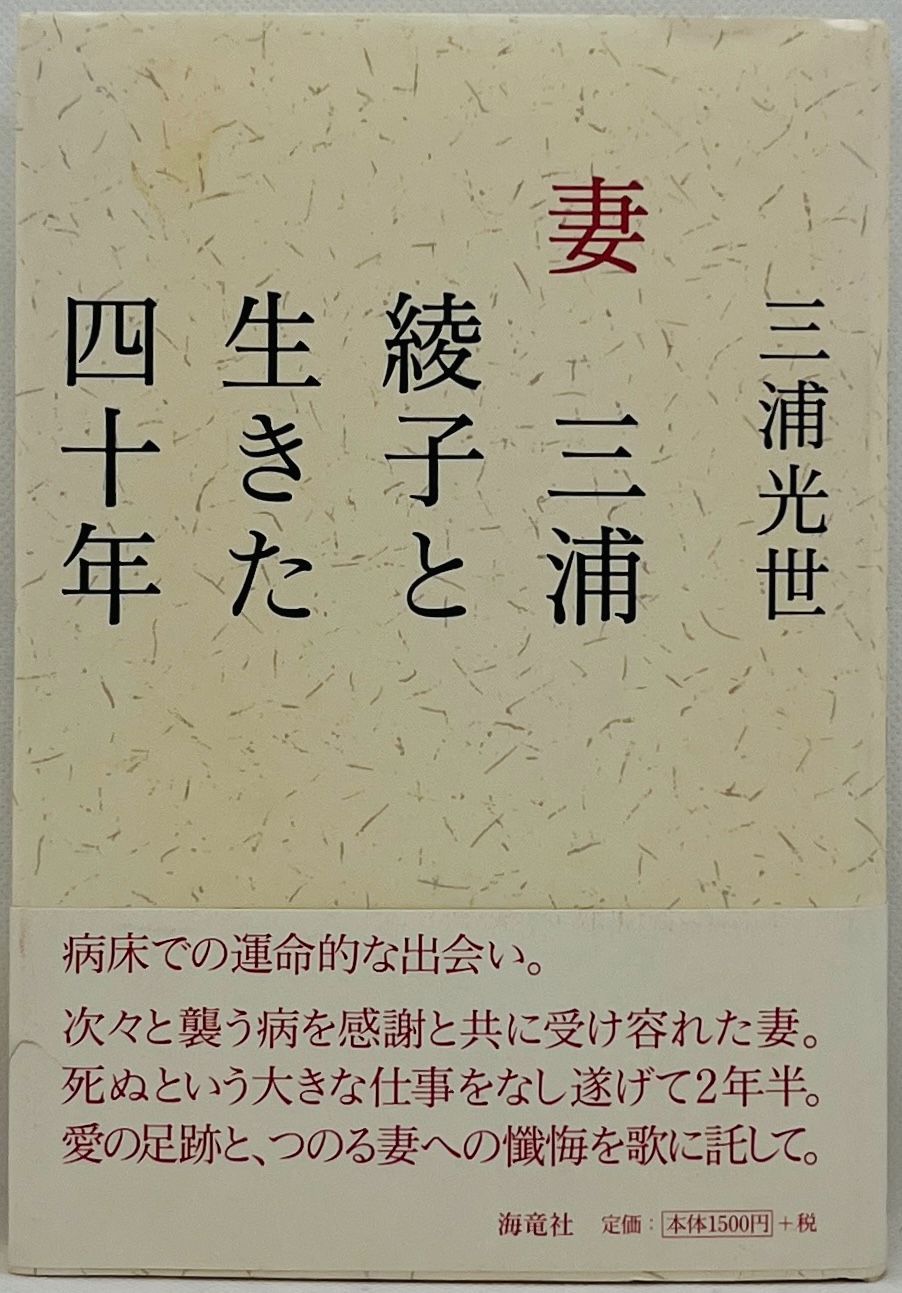 三浦光世
妻 三浦
綾子と
生きた
四十年
病床での運命的な出会い。
次々と襲う病を感謝と共に受け容れた妻。
死ぬという大きな仕事をなし遂げて2年半。
愛の足跡と、つのる妻への懺悔を歌に託して。
海竜社 定価：本体1500円+税